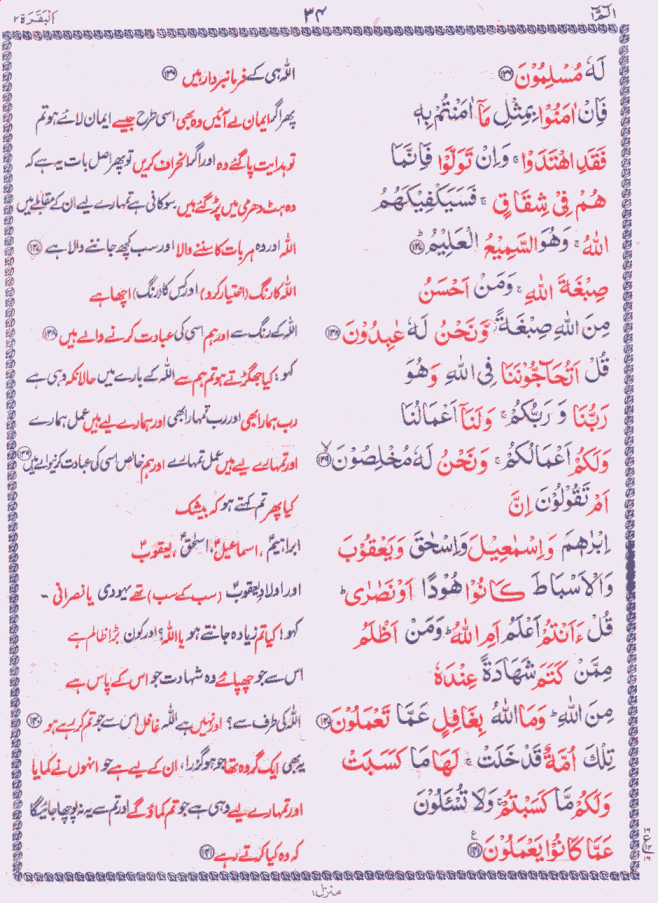 الٓمّٓ ۱
۳۴
اَلْبَقَرَة ۲
لَهٗ مُسْلِمُوْنَ ﴿۱۳۶﴾
اللہ ہی کے فرمانبردار ہیں ﴿۱۳۶﴾
فَاِنْ اٰمَنُوْا بِمِثْلِ مَاۤ اٰمَنْتُمْ بِهٖ
پھر اگر ایمان لے آئیں وہ بھی اسی طرح جیسے ایمان لائے ہو تم
فَقَدِ اهْتَدَوْا ۚ وَاِنْ تَوَلَّوْا فَاِنَّمَا
تو ہدایت پا گئے وہ اور اگر انحراف کریں تو پھر اصل بات یہ ہے کہ
هُمْ فِیْ شِقَاقٍ ۚ فَسَیَكْفِیْكَهُمُ
وہ ہٹ دھرمی میں پڑ گئے ہیں سو کافی ہے تمہارے لیے ان کے مقابلے میں
اللّٰهُ ۚ وَهُوَ السَّمِیْعُ الْعَلِیْمُ ﴿۱۳۷﴾
اللہ اور وہ ہر بات کا سننے والا اور سب کچھ جاننے والا ہے ﴿۱۳۷﴾
صِبْغَةَ اللّٰهِ ۚ وَمَنْ اَحْسَنُ
اللہ کا رنگ (اختیار کرو) اور کس کا (رنگ) اچھا ہے
مِنَ اللّٰهِ صِبْغَةً ؗ وَّنَحْنُ لَهٗ عٰبِدُوْنَ ﴿۱۳۸﴾
اللہ کے رنگ سے اور ہم اسی کی عبادت کرنے والے ہیں ﴿۱۳۸﴾
قُلْ اَتُحَآجُّوْنَنَا فِی اللّٰهِ وَهُوَ
کہو! کیا جھگڑتے ہو تم ہم سے اللہ کے بارے میں حالانکہ وہی ہے
رَبُّنَا وَ رَبُّكُمْ ۚ وَلَنَاۤ اَعْمَالُنَا
رب ہمارا بھی اور رب تمہارا بھی اور ہمارے لیے ہیں عمل ہمارے
وَلَكُمْ اَعْمَالُكُمْ ۚ وَنَحْنُ لَهٗ مُخْلِصُوْنَ ﴿۱۳۹﴾
اور تمہارے لیے ہیں عمل تمہارے اور ہم خالص اسی کی عبادت کرنیوالے ہیں ﴿۱۳۹﴾
اَمْ تَقُوْلُوْنَ اِنَّ
کیا پھر تم کہتے ہو کہ بیشک
اِبْرٰهٖمَ وَاِسْمٰعِیْلَ وَاِسْحٰقَ وَیَعْقُوْبَ
ابراہیمؑ، اسماعیلؑ، اسحٰقؑ، یعقوبؑ
وَالْاَسْبَاطَ كَانُوْا هُوْدًا اَوْ نَصٰرٰی ؕ
اور اولادِ یعقوبؑ (سب کے سب) تھے یہودی یا نصرانی ۔
قُلْ ءَاَنْتُمْ اَعْلَمُ اَمِ اللّٰهُ ؕ وَمَنْ اَظْلَمُ
کہو! کیا تم زیادہ جانتے ہو یا اللہ؟ اور کون بڑا ظالم ہے
مِمَّنْ كَتَمَ شَهَادَةً عِنْدَهٗ
اس سے جو چھپائے وہ شہادت جو اس کے پاس ہے
مِنَ اللّٰهِ ؕ وَمَا اللّٰهُ بِغَافِلٍ عَمَّا تَعْمَلُوْنَ ﴿۱۴۰﴾
اللہ کی طرف سے؟ اور نہیں ہے اللہ غافل اس سے جو تم کر رہے ہو ﴿۱۴۰﴾
تِلْكَ اُمَّةٌ قَدْ خَلَتْ ۚ لَهَا مَا كَسَبَتْ
یہ بھی ایک گروہ تھا جو ہو گزرا، ان کے لیے ہے جو انہوں نے کمایا
وَلَكُمْ مَّا كَسَبْتُمْ ۚ وَلَا تُسْـَٔلُوْنَ
اور تمہارے لیے وہی ہے جو تم کماؤ گے اور تم سے یہ نہ پوچھا جائیگا
عَمَّا كَانُوْا یَعْمَلُوْنَ ﴿۱۴۱﴾
کہ وہ کیا کرتے رہے ﴿۱۴۱﴾
منزل ۱